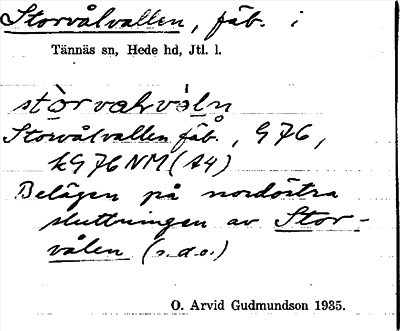 Storvålvallen, fäb. i
Tännäs sn, Hede hd, Jtl. l.
Storvålvallen fäb., G 76,
kG 76 NM (A4)
Belägen på nordöstra
sluttningen av Stor-
vålen (s.d.o.)
O. Arvid Gudmundson 1935.